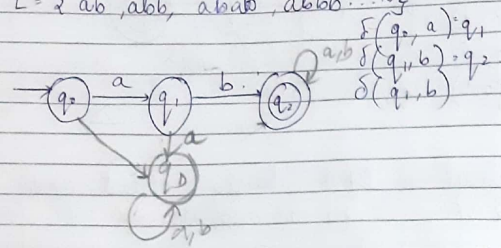 L = { ab, abb, abab, abbb....}
δ(q₀, a) = q₁
δ(q₁, b) = q₂
δ(q₁, b)
a,b
q₀ a q₁ b q₂
a
q_D
a,b